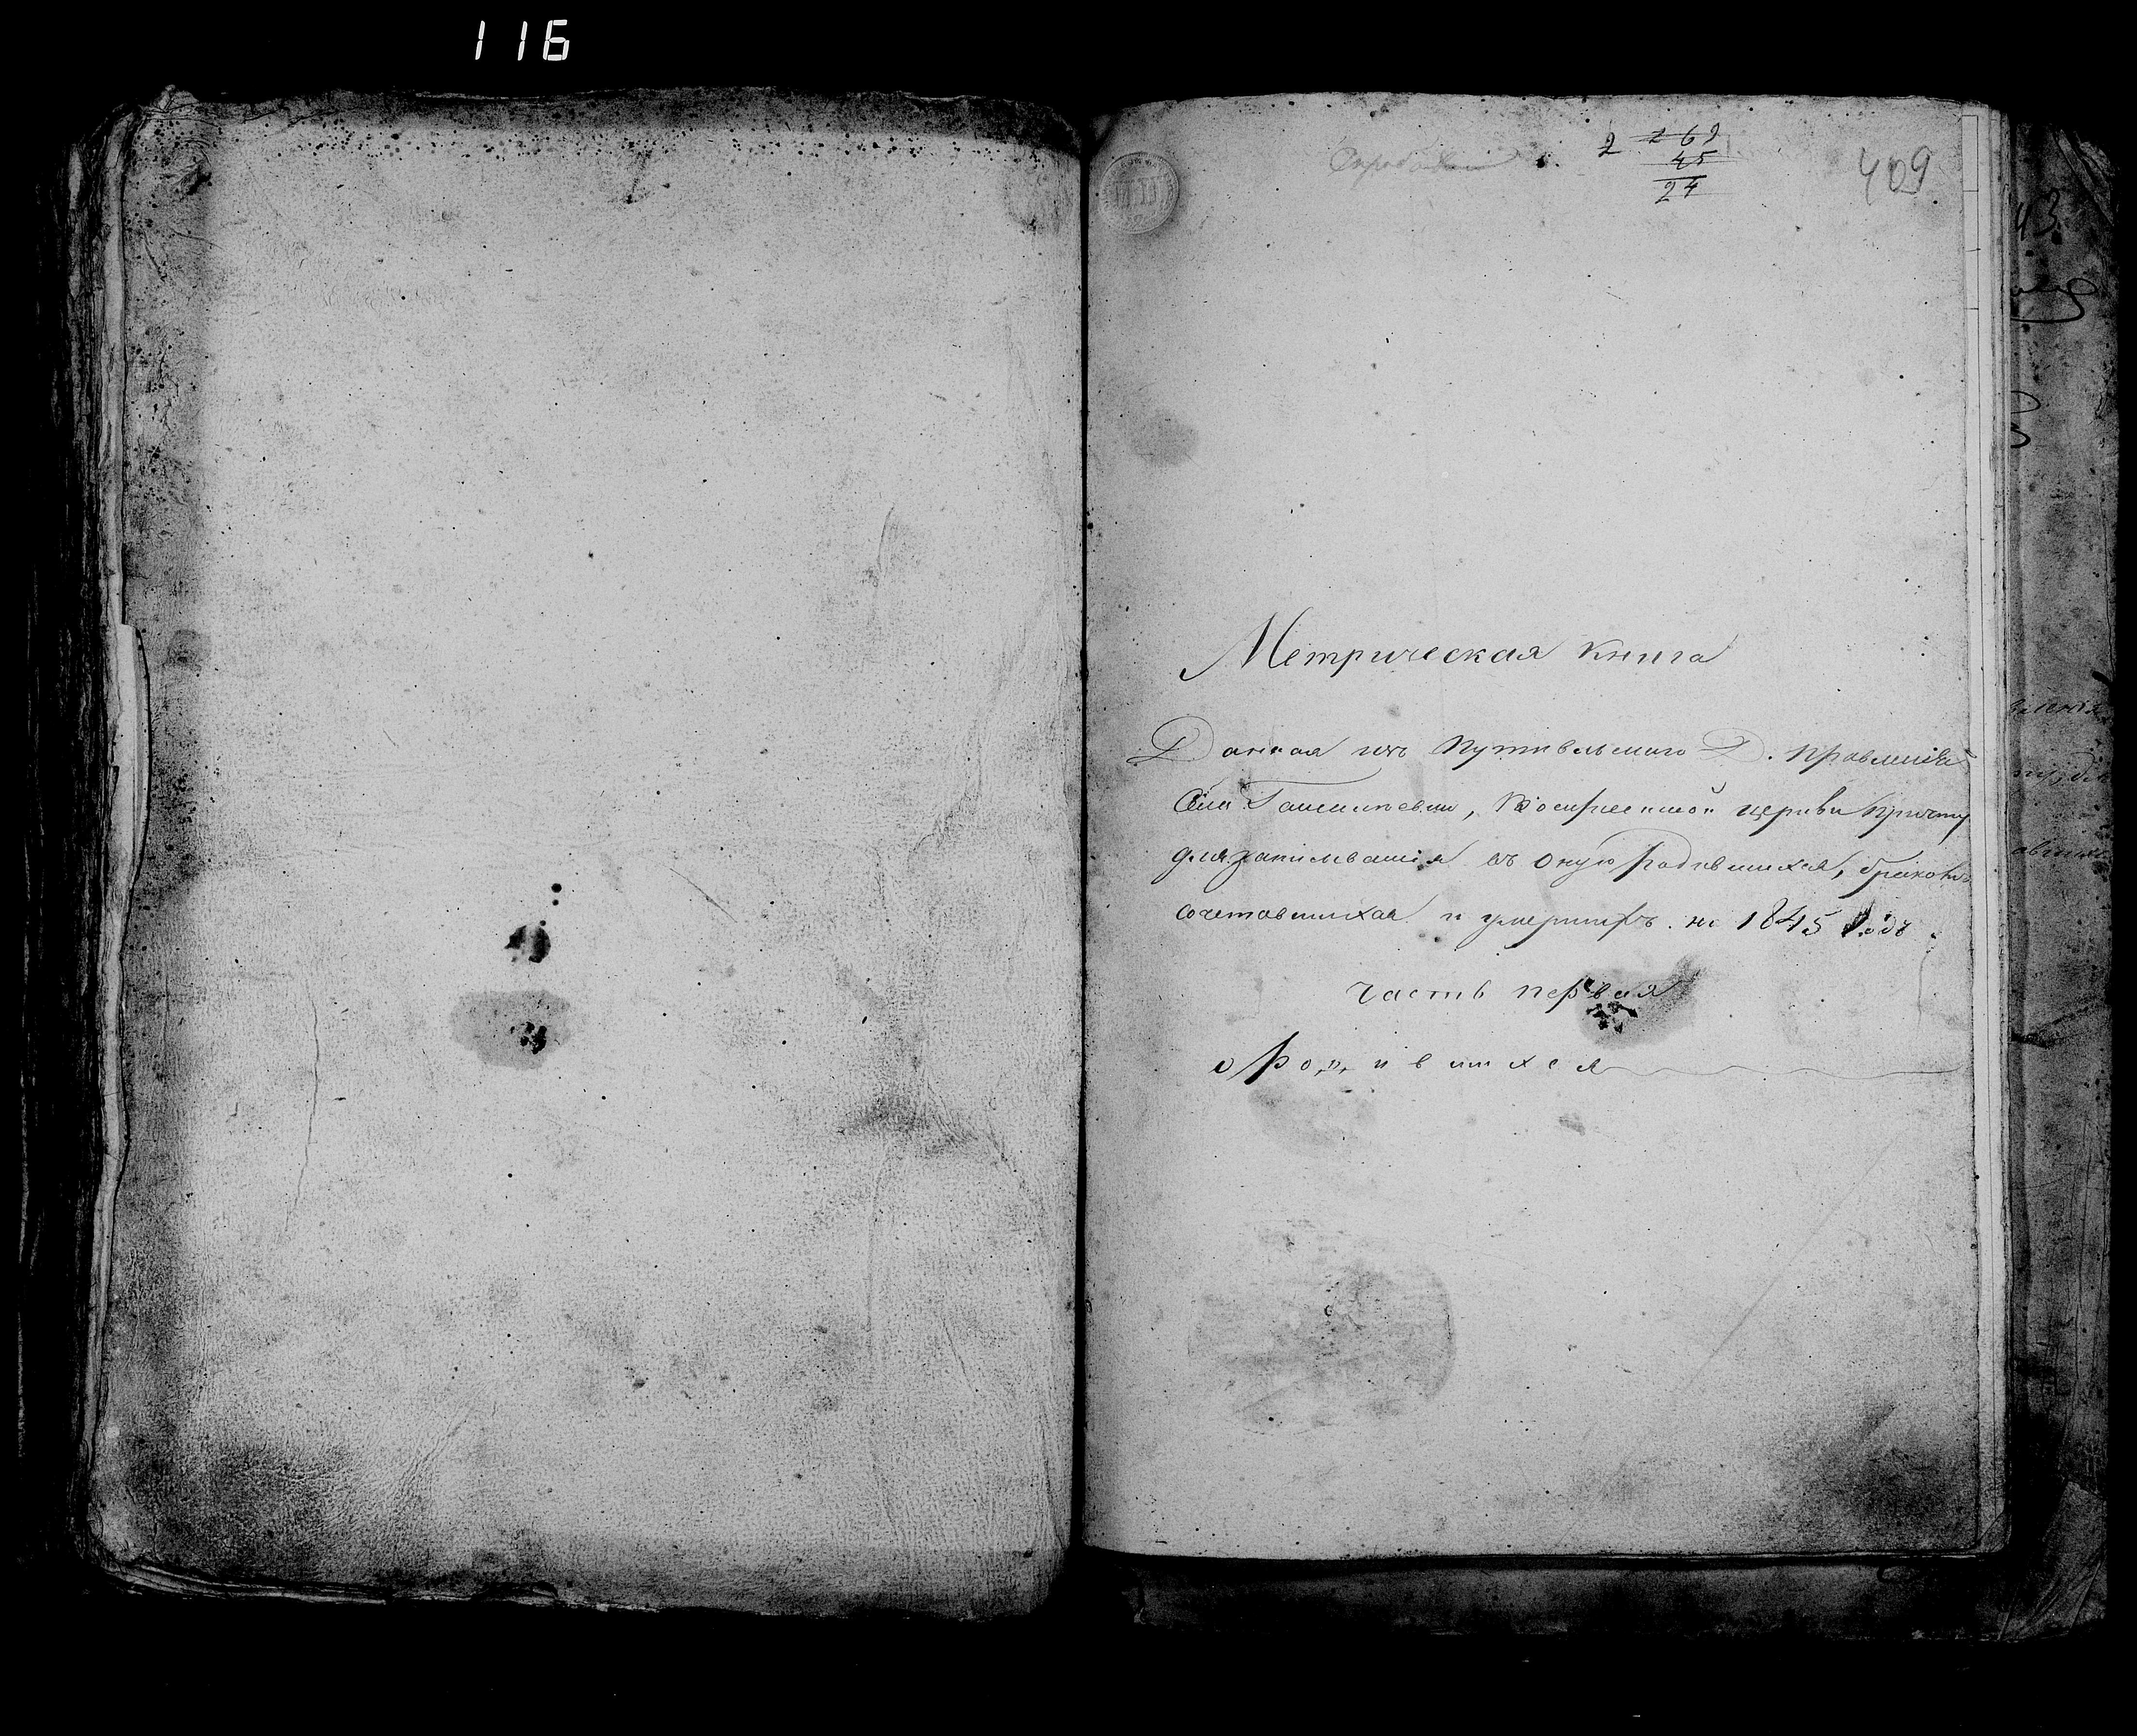 116
2 269
45
24
409
Метрическая книга
Данная изъ Путивльскаго Д. правленія
Села Воскресенской церкви причту
для записыванія въ оную родившихся, бракомъ
сочетавшихся и умершихъ на 1845 годъ.
часть первая
о родившихся